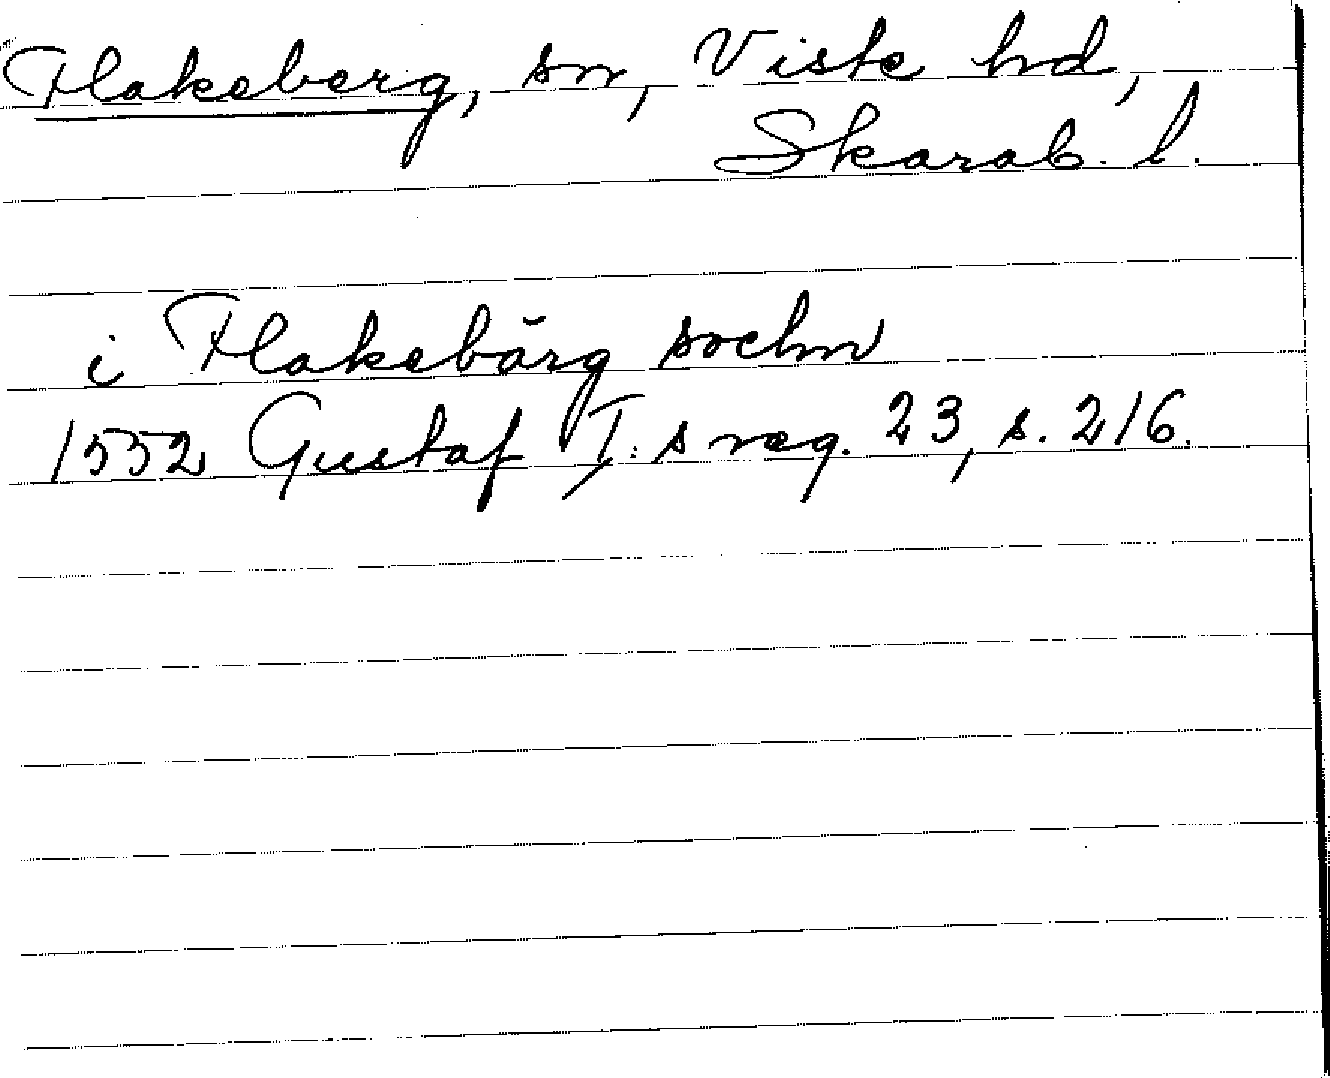 Flakeberg, sn, Viste hd,
Skarab. l.
i Flakebärg sochn
1552 Gustaf I:s reg. 23, s. 216.